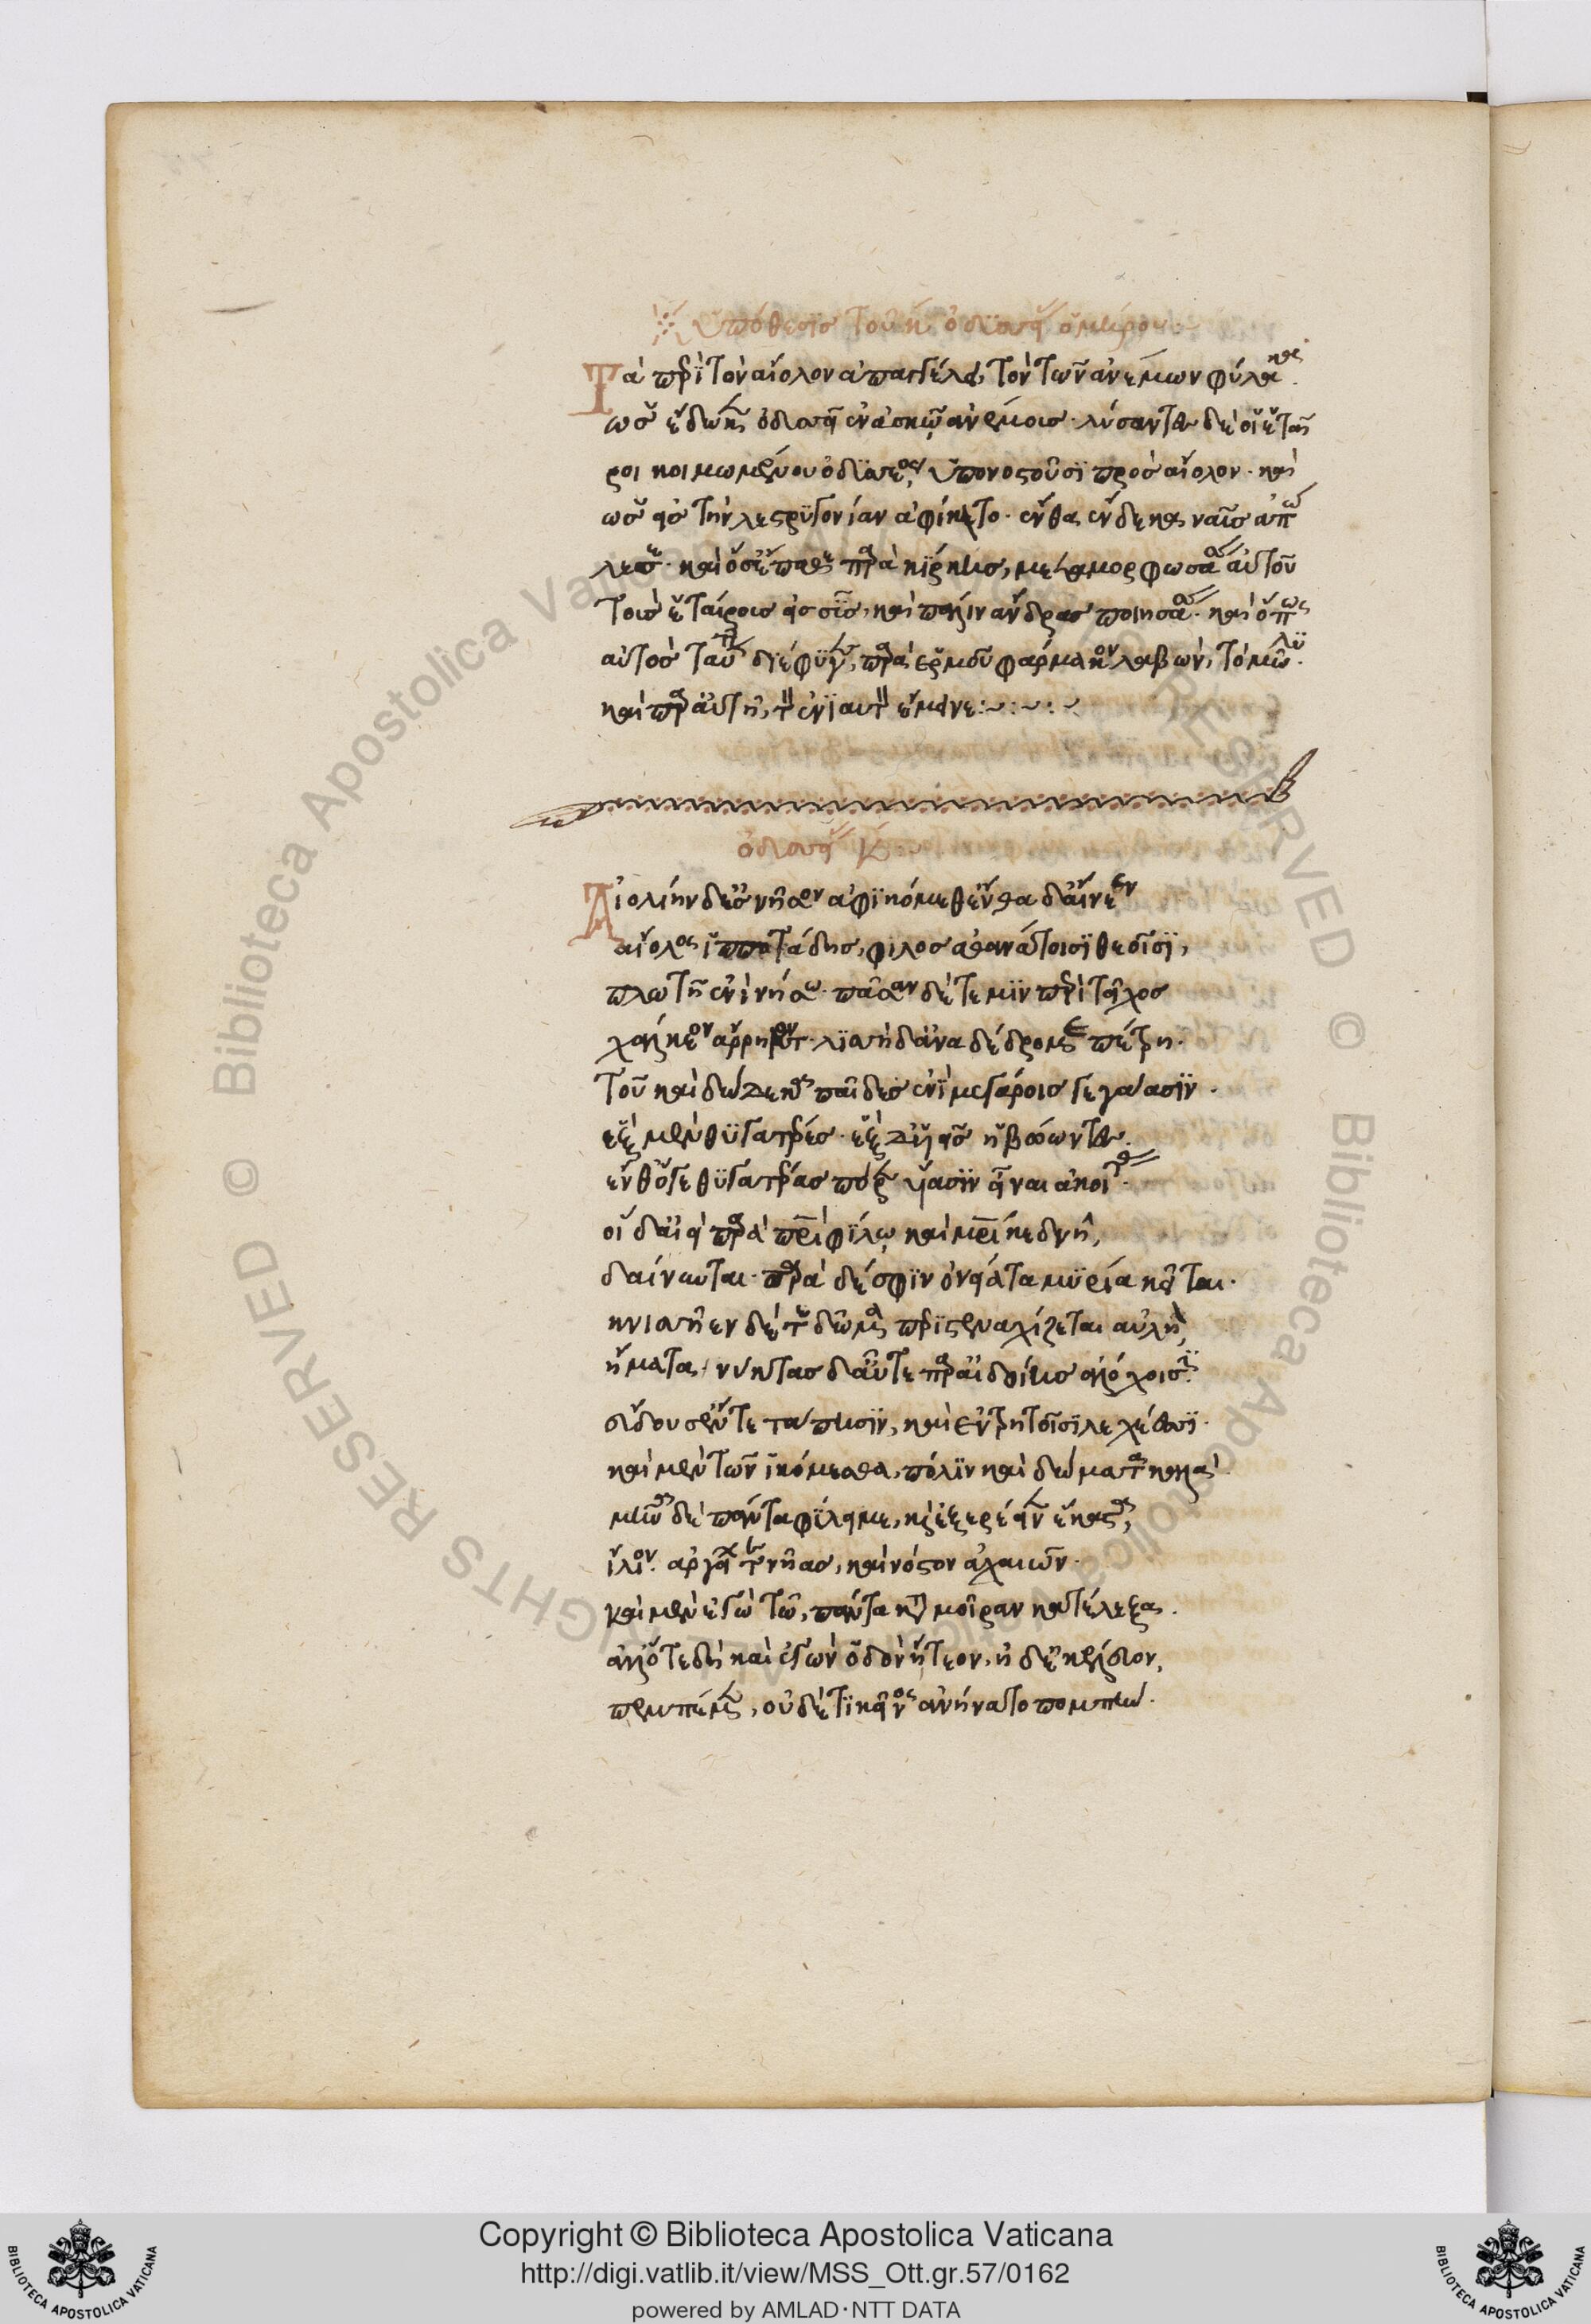 ὑπόθεσϊσ τοῦ κ ὀδϋσσείας ὁμήρου
Τὰ περὶ τὸν αἴολον ἀπαγγέλει, τὸν τῶν ἀνέμων φύλακα.
ὡσ ἔδωκεν ὀδυσσεῖ ἐν ἀσκῶ ἀνέμοισ. λύσαντες δὲ οἱ ἑταῖ
ροι κοιμωμένου ὀδϋσσέος, ὑπονοστοῦσϊ πρὸσ αἴολον. καὶ
ὡσ εἰσ τὴν λεστρϋγονίαν ἀφίκετο. ἔνθα ἕνδεκα ναῦσ ἀπώ
λεσε. καὶ ὅσα ἔπαθε παρὰ κίρκησ, μεταμορφωσάσα αὐτοῦ
τοὺσ ἑταίροισ εἰσ σῦσ, καὶ πάλιν ἄνδρασ ποιησάσα. καὶ ὅπως
αὐτὸσ ταῦτα διέφϋγεν, παρὰ ἑρμοῦ φάρμακον λαβὼν, τὸ μῶλϋ.
καὶ παρ' αὐτῆ, τὸν ἐνϊαυτὸν ἔμεινε:~:~:~
ὀδυσσείας Κ
Αἰολίην δ' ἐσ νῆσον ἀφϊκόμεθ' ἔνθα δ' ἔναιεν
αἴολος ἱπποτάδησ, φίλοσ ἀθανάτοισϊ θεοῖσϊ,
πλωτῆ ἐνὶ νήσω. πᾶσαν δέ τέ μϊν περὶ τεῖχοσ
χάλκεον ἄρρηκτον. λϊσσὴ δ' ἀναδέδρομε πέτρη.
τοῦ καὶ δώδεκα παῖδεσ ἐνὶ μεγάροισ γεγάασϊν.
ἓξ μὲν θϋγατέρεσ. ἓξ δ' υἱεῖσ ἡβώωντες.
ἔνθ' ὅγε θϋγατέρασ πόρεν υἱάσϊν εἶναι ἀκοίτας.
οἱ δ' αἰεὶ παρὰ πατρὶ φίλω καὶ μητρὶ κεδνῆ,
δαίνυνται. παρὰ δέ σφϊν ὀνείατα μϋρία κεῖται.
κνισσῆεν δέ τε δῶμα περιστεναχίζεται αὐλῆ,
ἤματα. νύκτασ δ' αὖτε παρ' αἰδοίησ ἀλόχοισϊ.
εὕδουσ' ἔν τε τάπησϊν, καὶ ἐν τρητοῖσϊ λεχέεσσϊ.
καὶ μὲν τῶν ἱκόμεσθα, πόλϊν καὶ δώματα καλὰ
μῆνα δὲ πάντα φίλει με, καὶ ἐξερέεινεν ἕκαστα,
ἴλιον. ἀργείων τε νῆασ, καὶ νόστον ἀχαιῶν.
καὶ μὲν ἐγὼ τῶ, πάντα κατὰ μοῖραν κατέλεξα.
ἀλλ' ὅτε δὴ καὶ ἐγὼν ὁδὸν ἤτεον, ἠδ' ἐκέλευον,
πεμπέμεν, οὐδέ τϊ κεῖνος ἀνήνατο πομπήν.
Copyright © Biblioteca Apostolica Vaticana
http://digi.vatlib.it/view/MSS_Ott.gr.57/0162
powered by AMLAD·NTT DATA